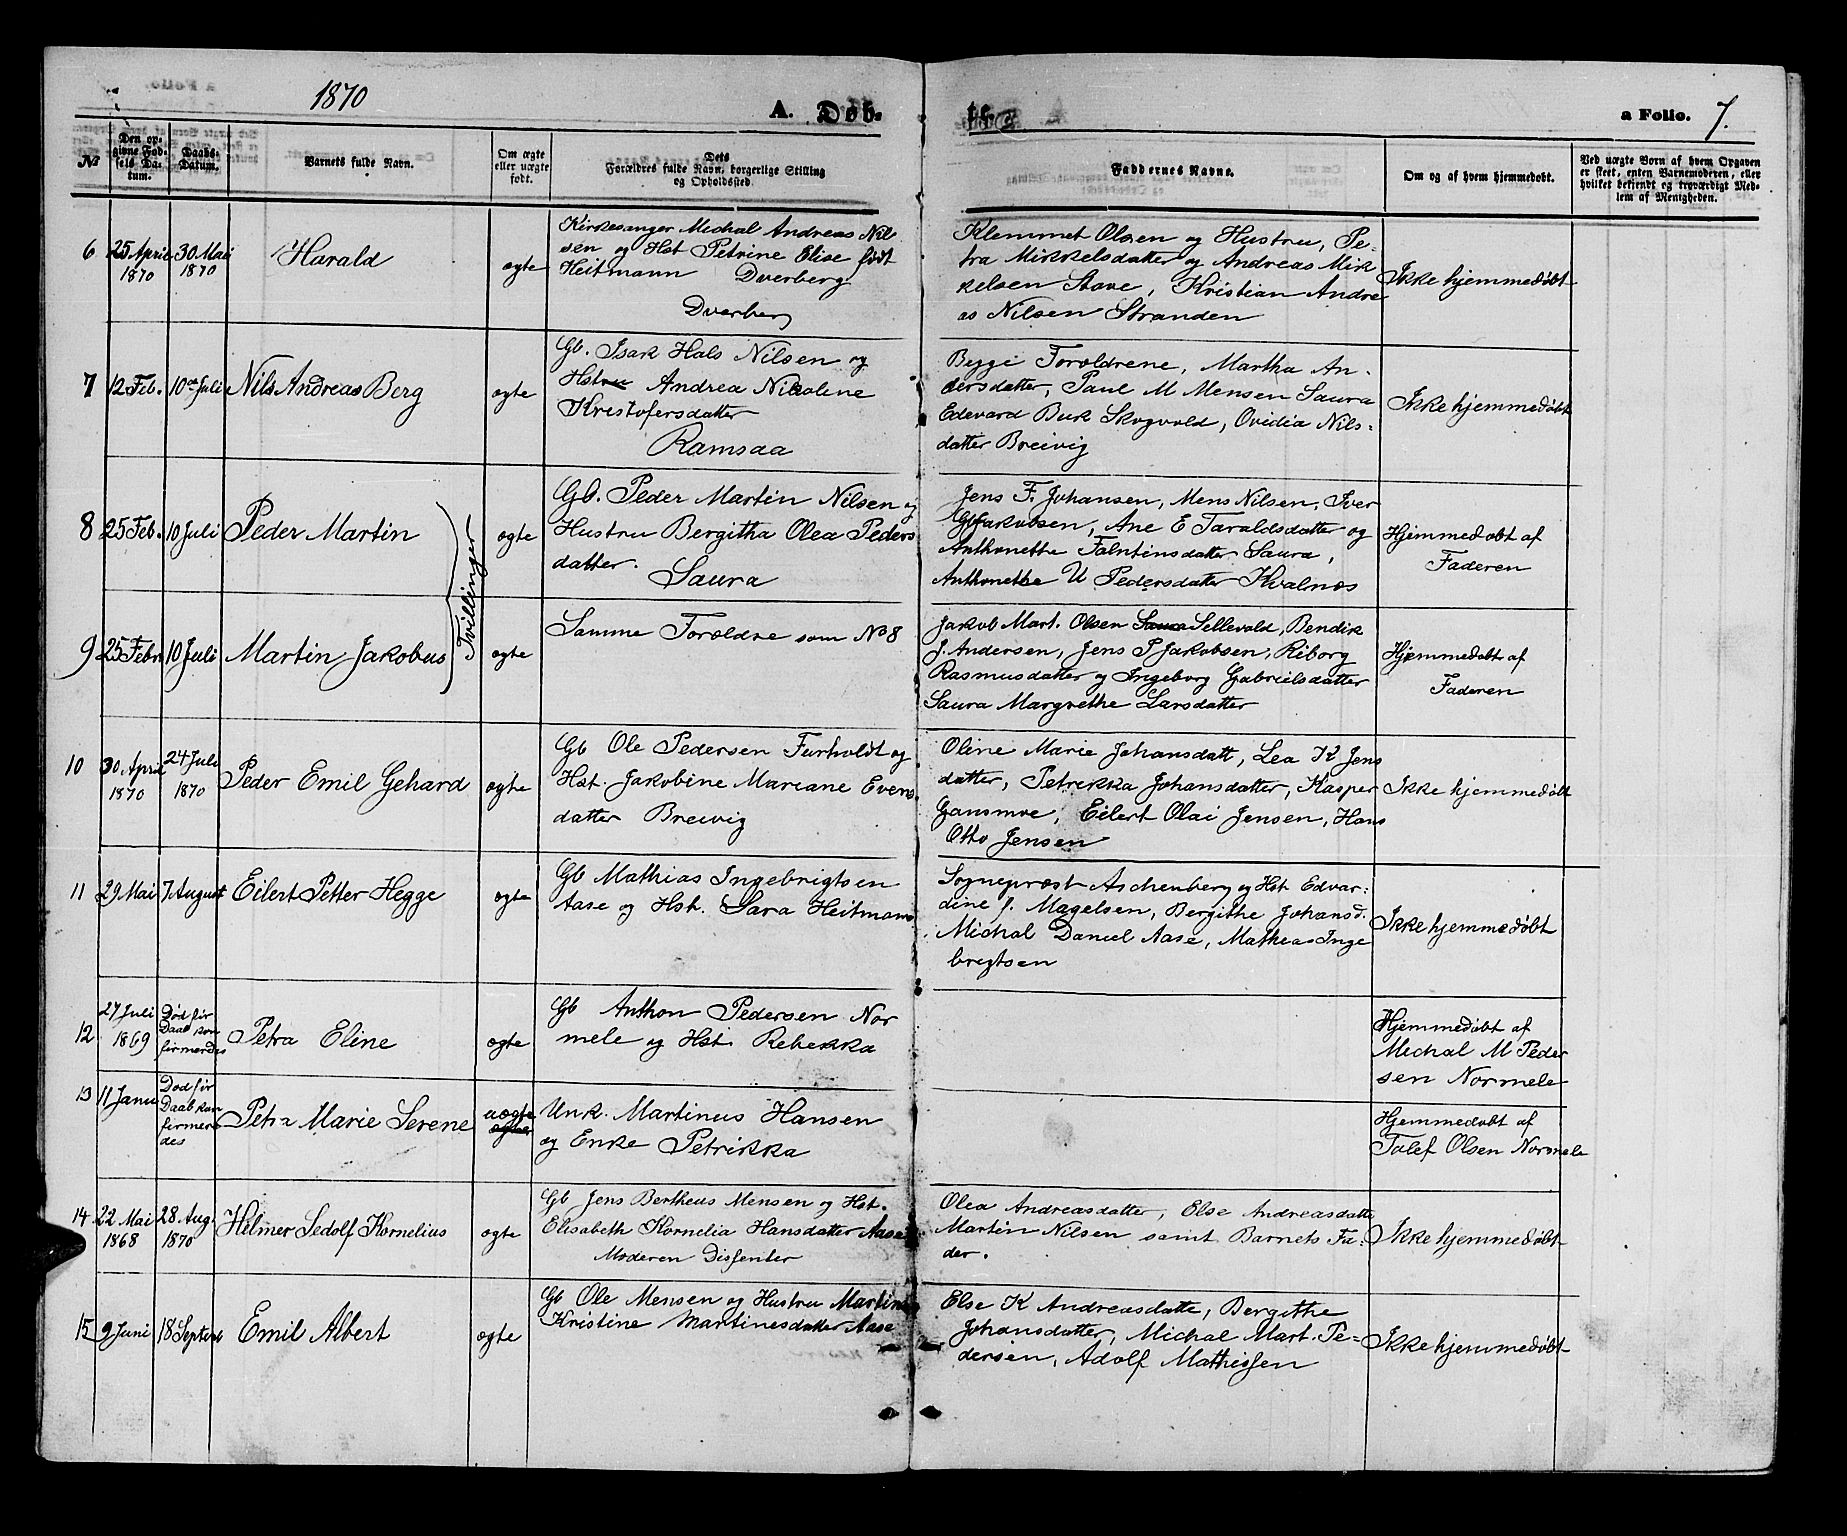 1870
A. Døb-
te.
a Folio. 7.
No
Den op-
givne Fød-
sels Da-
tum.
Daabs-
Datum.
Barnets fulde Navn.
Om ægte
eller uægte
født.
Dets
Forældres fulde Navn, borgerlige Stilling
og Opholdssted.
Faddernes Navne.
Om og af hvem hjemmedøbt.
Ved uægte Børn af hvem Opgaven
er skeet, enten Barnemoderen, eller
hvilket bekjendt og troværdigt Med-
lem af Menigheden.
6
25 April
1870
30 Mai
1870
Harald
ægte
Kirkesanger Michal Andreas Nil
sen og Hst Petrine Elise født
Heitmann Dverberg
Dverberg
Klemmet Olsen og Hustru, Pe-
tra Mikkelsdatter og Andreas Mik
kelsen Stave, Kristian Andre
as Nilsen Stranden
Ikke hjemmedøbt
7
12 Feb.
10de Juli
Nils Andreas Berg
ægte
Gb. Isak Hals Nilsen og
Hstru Andrea Nikoline
Kristofersdatter
Ramsaa
Begge Forældrene, Martha An-
dersdatter, Paul M Mensen Saura
Edevard Buk Skogvold, Ovidia Nils-
datter Breivig
Ikke hjemmedøbt
8
25 Feb.
10 Juli
Peder Martin
Tvillinger
ægte
Gb. Peder Martin Nilsen og
Hustru Bergitha Olea Peders
datter.
Saura
Jens F. Johansen, Mens Nilsen, Iver
G Jakobsen, Ane E Taraldsdatter og
Anthonette Falntinsdatter Saura,
Anthonethe U Pedersdatter Kvalnæs
Hjemmedøbt af
Faderen
9
25 Febr
10 Juli
Martin Jakobus
ægte
Samme Forældre som No 8
Jakob Mart. Olsen Saura Sellevold, Bendik
J. Andersen, Jens P Jakobsen, Riborg
Rasmusdatter og Ingeborg Gabrielsdatter
Saura Margrethe Larsdatter
Hjemmedøbt af
Faderen
10
30 April
1870
24 Juli
1870
Peder Emil Gehard
ægte
Gb Ole Pedersen Furholdt og
Hst. Jakobine Mariane Evens
datter Breivig
Oline Marie Johansdatt, Lea K Jens
datter, Petrikka Johansdatter, Kasper
Gansmoe, Eilert Olai Jensen, Hans
Otto Jensen
Ikke hjemmedøbt
11
29 Mai
7 August
Eilert Petter Hegge
ægte
Gb Mathias Ingebrigtsen
Aase og Hst. Sara Heitmann
Sogneprest Aschenberg og Hst Edvar-
dine f. Magelsen, Bergithe Johansd.
Michal Daniel Aase, Mathias Inge
brigtsen
Ikke hjemmedøbt
12
27 Juli
1869
Død før
Daab kon
firmerdes
Petra Eline
ægte
Gb Anthon Pedersen Nor
mele og Hst. Rebekka
Hjemmedøbt af
Michal M Peder
sen Normele
13
11 Janu
Død før
Daab kon
firmer
des
Petra Marie Serene
uægte
ægte
Unk. Martinus Hansen
og Enke Petrikka
Hjemmedøbt af
Tolef Olsen Normele
14
22 Mai
1868
28 Aug.
1870
Helmer Sedolf Kornelius
ægte
Gb Jens Bertheus Mensen og Hst.
Elisabeth Kornelia Hansdatter Aase
Moderen Dissenter
Olea Andreasdatter, Else Andreasdatte
Martin Nilsen samt Barnets Fa-
der.
Ikke hjemmedøbt
15
9 Juni
18 Septem
Emil Albert
ægte
Gb Ole Mensen og Hustru Martine
Kristine Martinesdatter Aase
Else K Andreasdatte, Bergithe
Johansdatter, Michal Mart. Pe-
dersen, Adolf Mathissen
Ikke hjemmedøbt